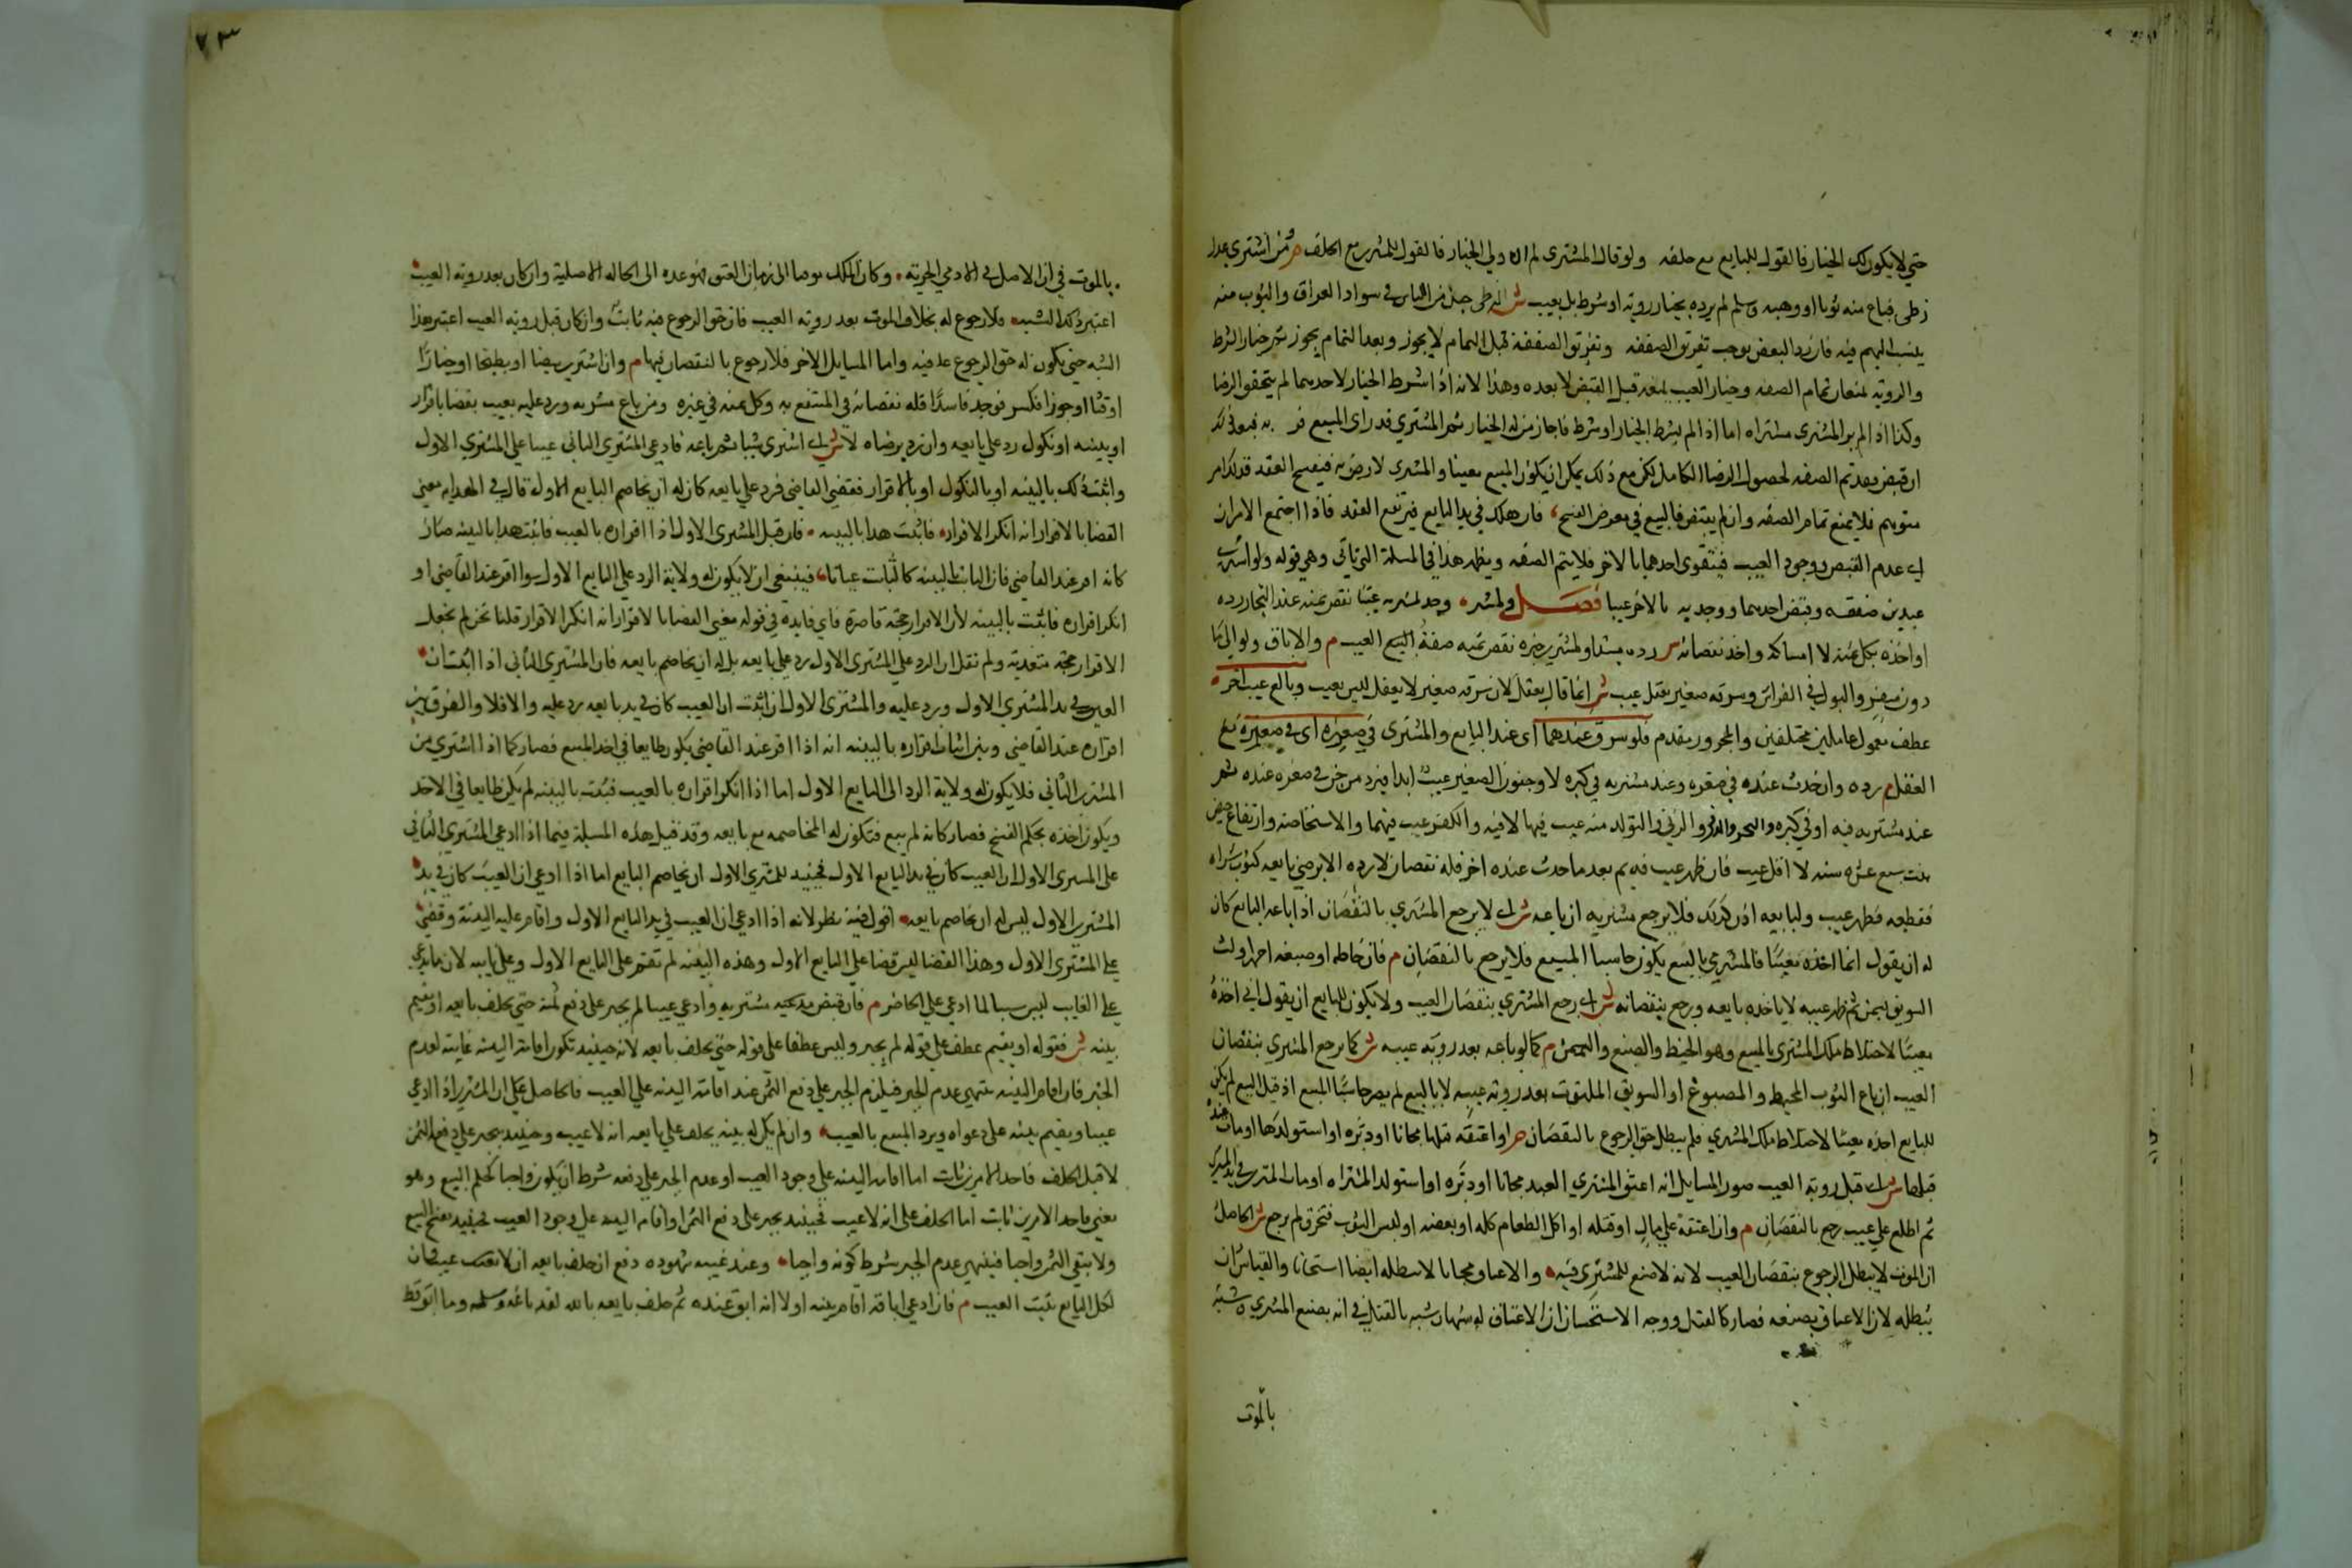 حتي لا يكون لك الخيار فالقول للبايع مع حلفه ولو قال المشتري لم ار ولي الخيار فالقول للمشتري مع الحلف م ومن اشتري عدل
زطي فباع منه ثوبا او وهبه وسلم لم يرده بخيار روية او شرط بل بعيب ش الزطي جنس من الناس في سواد العراق والثوب منه
ينسب اليهم فيه فان رد البعض يوجب تفريق الصفقه وتفريق الصفقة قبل التمام لا يجوز وبعد التمام يجوز ثم خيار الشرط
والروية يمنعان تمام الصفه وخيار العيب يمنعه قبل القبض لا بعده وهذا لانه اذا شرط الخيار لاحدهما لم يتحقق الرضا
وكذا اذا لم ير المشتري مشتراه اما اذا لم يشرط الخيار او شرط فاجاز من له الخيار ثم المشتري قد راى المبيع فر به فبعد ذلك
ان قبض فقد تم الصفه لحصول الرضا الكامل لكن مع ذلك يمكن ان يكون المبيع معيبا والمشتري لا رضى به فيفسخ العقد فذلك امر
متوهم فلا يمنع تمام الصفه وان لم يقبض فالبيع في معرض الفسخ فان هلك في يد البايع فيرتفع العقد فاذا اجتمع الامران
اي عدم القبض ووجود العيب فيتقوى احدهما بالاخر فلا يتم الصفه ويظهر هذا في المسلة التي تاتي وهي قوله ولو اشترى
عبدين صفقه وقبض احدهما ووجد به بالاخر عيبا فصل ولمشتر وجد لمشريه عيبا نقص ثمنه عند التجار رده
او اخذه بكل ثمنه لا امساكه واخذ نقصانه ش رده مبتدا ولمشتر خبره نقص ثمنه صفة البيع العيب م والاباق ولو الى ما
دون سفر والبول في الفراش وسرقه صغير يعقل عيب ش انما قال يعقل لان سرقه صغير لا يعقل ليس بعيب وبالغ عيب اخر
عطف معمول عاملين مختلفين والمجرور مقدم فلو سرق عندهما اى عند البايع والمشترى في صغره اى في صغره مع
العقل م رده وان حدث عنده في صغره وعند مشتريه في كبره لا وجنون الصغير عيب ابدا فيرد من جن في صغره عنده ثم
عند مشتريه فيه او في كبره والبخر والدفر والزنى والتولد منه عيب فيها لا فيه والكفر عيب فيهما والاستحاضة وارتفاع حيض
بنت سبع عشره سنه لا اقل عيب فان ظهر عيب قديم بعد ما حدث عنده اخر فله نقصانه لا رده الا برضى بايعه كثوب شراه
فقطعه فظهر عيب ولبايعه اخذه كذلك فلا يرجع مشتريه ان باعه ش اي لا يرجع المشتري بالنقصان اذا باعه البايع كان
له ان يقول انما اخذه معيبا فالمشتري بالبيع يكون حابسا المبيع فلا يرجع بالنقصان م فان خاطه او صبغه احمر او لت
السويق بسمن ثم ظهر عيبه لا ياخذه بايعه ورجع بنقصانه ش اي رجع المشتري بنقصان العيب ولا يكون للبايع ان يقول اني اخذه
معيبا لاختلاط ملك المشترى بالمبيع وهو الخيط والصبغ والسمن م كما لو باعه بعد روية عيبه ش كما يرجع المشترى بنقصان
العيب ان باع الثوب المخيط والمصبوغ او السويق الملتوت بعد روية عيبه لا بالبيع لم يصر حابسا المبيع اذ قبل البيع لم يكن
للبايع اخذه معيبا لاختلاط ملك المشتري فلم يبطل حق الرجوع بالنقصان م او اعتقه قبلها مجانا او دبره او استولدها او مات عنده
قبلها ش اي قبل روية العيب صور المسايل انه اعتق المشتري العبد مجانا او دبره او استولد المشتراه او مات المشترى في يد المشتري
ثم اطلع علي عيب رجع بالنقصان م وان اعتقه على مال او قتله او اكل الطعام كله او بعضه او لبس الثوب فتخرق لم يرجع ش الحاصل
ان الموت لا يبطل الرجوع بنقصان العيب لانه لا صنع للمشتري فيه والاعتاق مجانا لا يبطله ايضا استحسانا والقياس ان
يبطله لان الاعتاق بصنعه فصار كالقتل ووجه الاستحسان ان الاعتاق له شبهان شبه بالقتل في انه بصنع المشتري وشبه
بالموت
٧٣
بالموت في ان الاصل في الادمي الحرية وكان الملك موقتا الى زمان العتق فهو عوده الى الحاله الاصلية وان كان بعد روية العيب
اعتبر ذلك الشبه فلا رجوع له بخلاف الموت بعد روية العيب فان حق الرجوع فيه ثابت وان كان قبل روية العيب اعتبر هذا
الشبه حتى يكون له حق الرجوع عليه فيه واما المسايل الاخر فلا رجوع بالنقصان فيها م وان اشترى بيضا او بطيخا او خيارا
او قثا او جوزا فكسر فوجد فاسدا فله نقصانه في المنتفع به وكل ثمنه في غيره ومن باع مشريه ورد عليه بعيب بقضا باقرار
او بينه او نكول رد علي بايعه وان رد برضاه لا ش اي اشترى شيا ثم باعه فادعى المشتري الثاني عيبا علي المشتري الاول
واثبت ذلك بالبينه او بالنكول او بالاقرار فقضى القاضي فرد علي بايعه كان له ان يخاصم البايع الاول قال في الهداية معنى
القضا بالاقرار انه انكر الاقرار فاثبت هذا بالبينه فان قيل المشتري الاول اذا اقراره بالعيب فاثبت هذا بالبينه صار
كانه اقر عند القاضي فان الثابت بالبينه كالثابت عيانا فينبغي ان لا يكون له ولاية الرد علي البايع الاول سوا اقر عند القاضي او
انكر اقراره فاثبت بالبينه لان الاقرار حجة قاصرة فاي فايدة في قوله معنى القضا بالاقرار انه انكر الاقرار قلنا نحن لم نجعل
الاقرار حجة متعدية ولم نقل ان الرد على المشتري الاول رد علي بايعه بل له ان يخاصم بايعه فان المشتري الثاني اذا اثبت ان
العيب في يد المشتري الاول ورد عليه والمشترى الاول ان اثبت ان العيب كان في يد بايعه رد عليه والا فلا والفرق بين
اقراره عند القاضي وبين اثبات اقراره بالبينه انه اذا اقر عند القاضي يكون طايعا في اخذ المبيع فصار كما اذا اشترى من
المشترى الثاني فلا يكون له ولاية الرد الى البايع الاول اما اذا انكر اقراره بالعيب فيثبت بالبينه لم يكن طايعا في الاخذ
ويكون اخذه بحكم الفسخ فصار كانه لم يبع فتكون له المخاصمه مع بايعه وقد قيل هذه المسلة فيما اذا ادعى المشتري الثاني
على المشتري الاول ان العيب كان في يد البايع الاول فحينيذ للمشتري الاول ان يخاصم البايع اما اذا ادعى ان العيب كان في يد
المشتري الاول ليس له ان يخاصم بايعه اقول فيه نظر لانه اذا ادعى ان العيب في يد البايع الاول واقام عليه البينة وقضي
على المشترى الاول وهذا القضا ليس قضا علي البايع الاول وهذه البينه لم تقم على البايع الاول وعلى نايبه لان ما يدعى
على الغايب ليس سببا لما ادعى علي الحاضر م فان قبض مبيعه مشتريه وادعى عيبا لم يجبر علي دفع ثمنه حتى يحلف بايعه او يقيم
بينه ش فقوله او يقيم عطف علي قوله لم يجبر وليس عطفا علي قوله حتى يحلف بايعه لانه حينيذ تكون اقامة البينه غاية لعدم
الجبر فان اقام البينه ينتهي عدم الجبر فيلزم الجبر علي دفع الثمن عند اقامة البينه علي العيب فالحاصل علي ان المشتري اذا ادعى
عيبا ويقيم بينه علي دعواه ويرد المبيع بالعيب وان لم يكن له بينه يحلف علي بايعه انه لا عيب وحينيذ يجبر علي دفع الثمن
لا قبل الحلف فاحد الامرين ثابت اما اقامه البينه علي وجود العيب او عدم الجبر علي دفعه شرط ان يكون واجبا بحكم البيع وهو
معنى فاحد الامرين ثابت اما الحلف على انه لا عيب فحينيذ يجبر على دفع الثمن او اقامه البينه علي وجود العيب فحينيذ يفسخ البيع
ولا يبقى الثمن واجبا فينتهي عدم الجبر بشرط كونه واجبا وعند غيبة شهوده دفع ان حلف بايعه ان لا عيب فان
نكل البايع ثبت العيب م فان ادعى اباقه اقام بينه اولا انه ابق عنده ثم حلف بايعه بالله لقد باعه وسلمه وما ابق قط